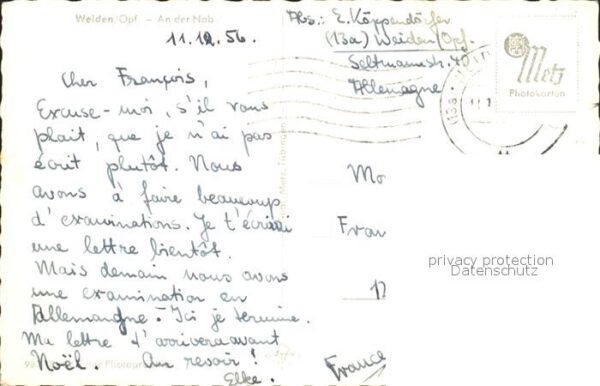 Weiden/Opf. – An der Nab
11.12.56.
Cher François,
Excuse-moi, s'il vous
plait, que je n'ai pas
écrit plutôt. Nous
avons à faire beaucoup
d'examinations. Je t'écrirai
une lettre bientôt.
Mais demain nous avons
une examination en
Allemangne. Ici je termine.
Ma lettre t'arrivera avant
Noël. Au revoir!
Elke.
Abs.: E. Köppendörfer
(13a) Weiden/Opf.
Seltmannstr. 40
Allemagne
Metz
Photokarton
Metz, Tübingen
Mo
Fran
privacy protection
Datenschutz
12
France